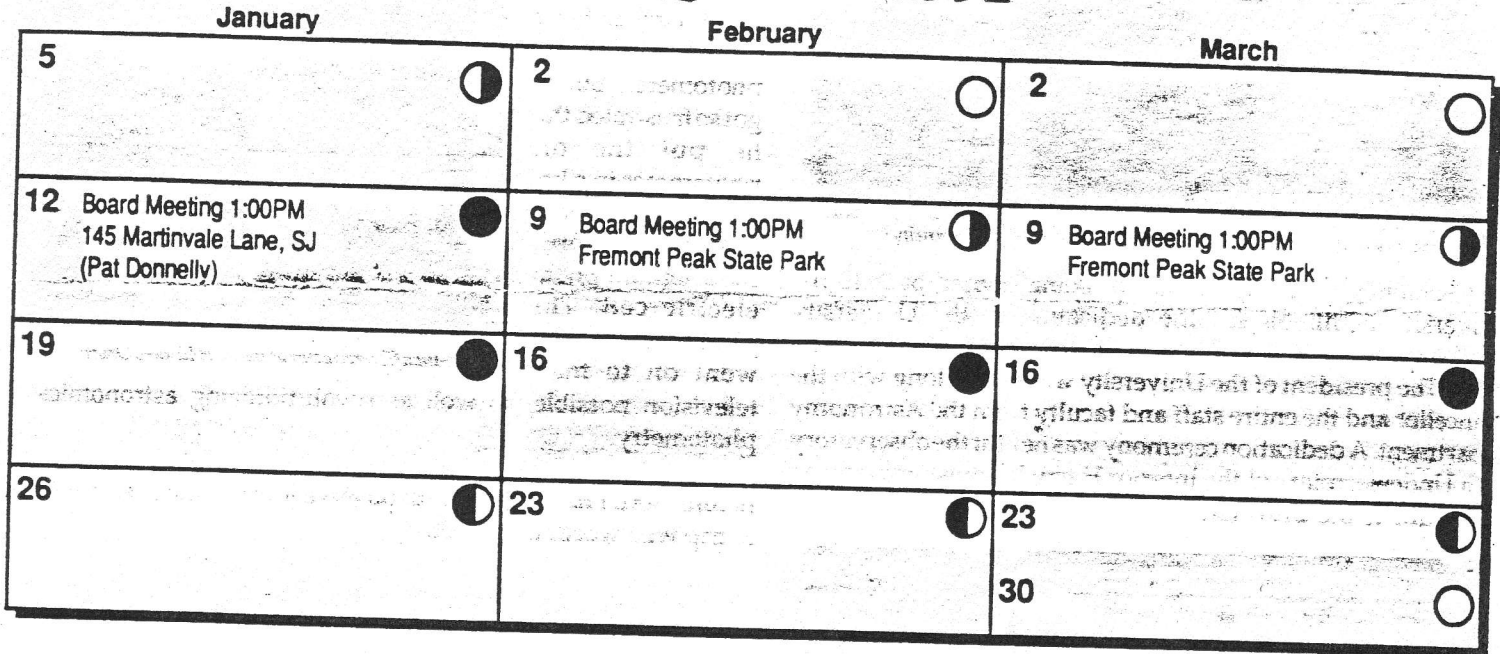 January
February
March
5
2
2
12 Board Meeting 1:00PM
145 Martinvale Lane, SJ
(Pat Donnelly)
9 Board Meeting 1:00PM
Fremont Peak State Park
9 Board Meeting 1:00PM
Fremont Peak State Park
19
16
16
26
23
23
30